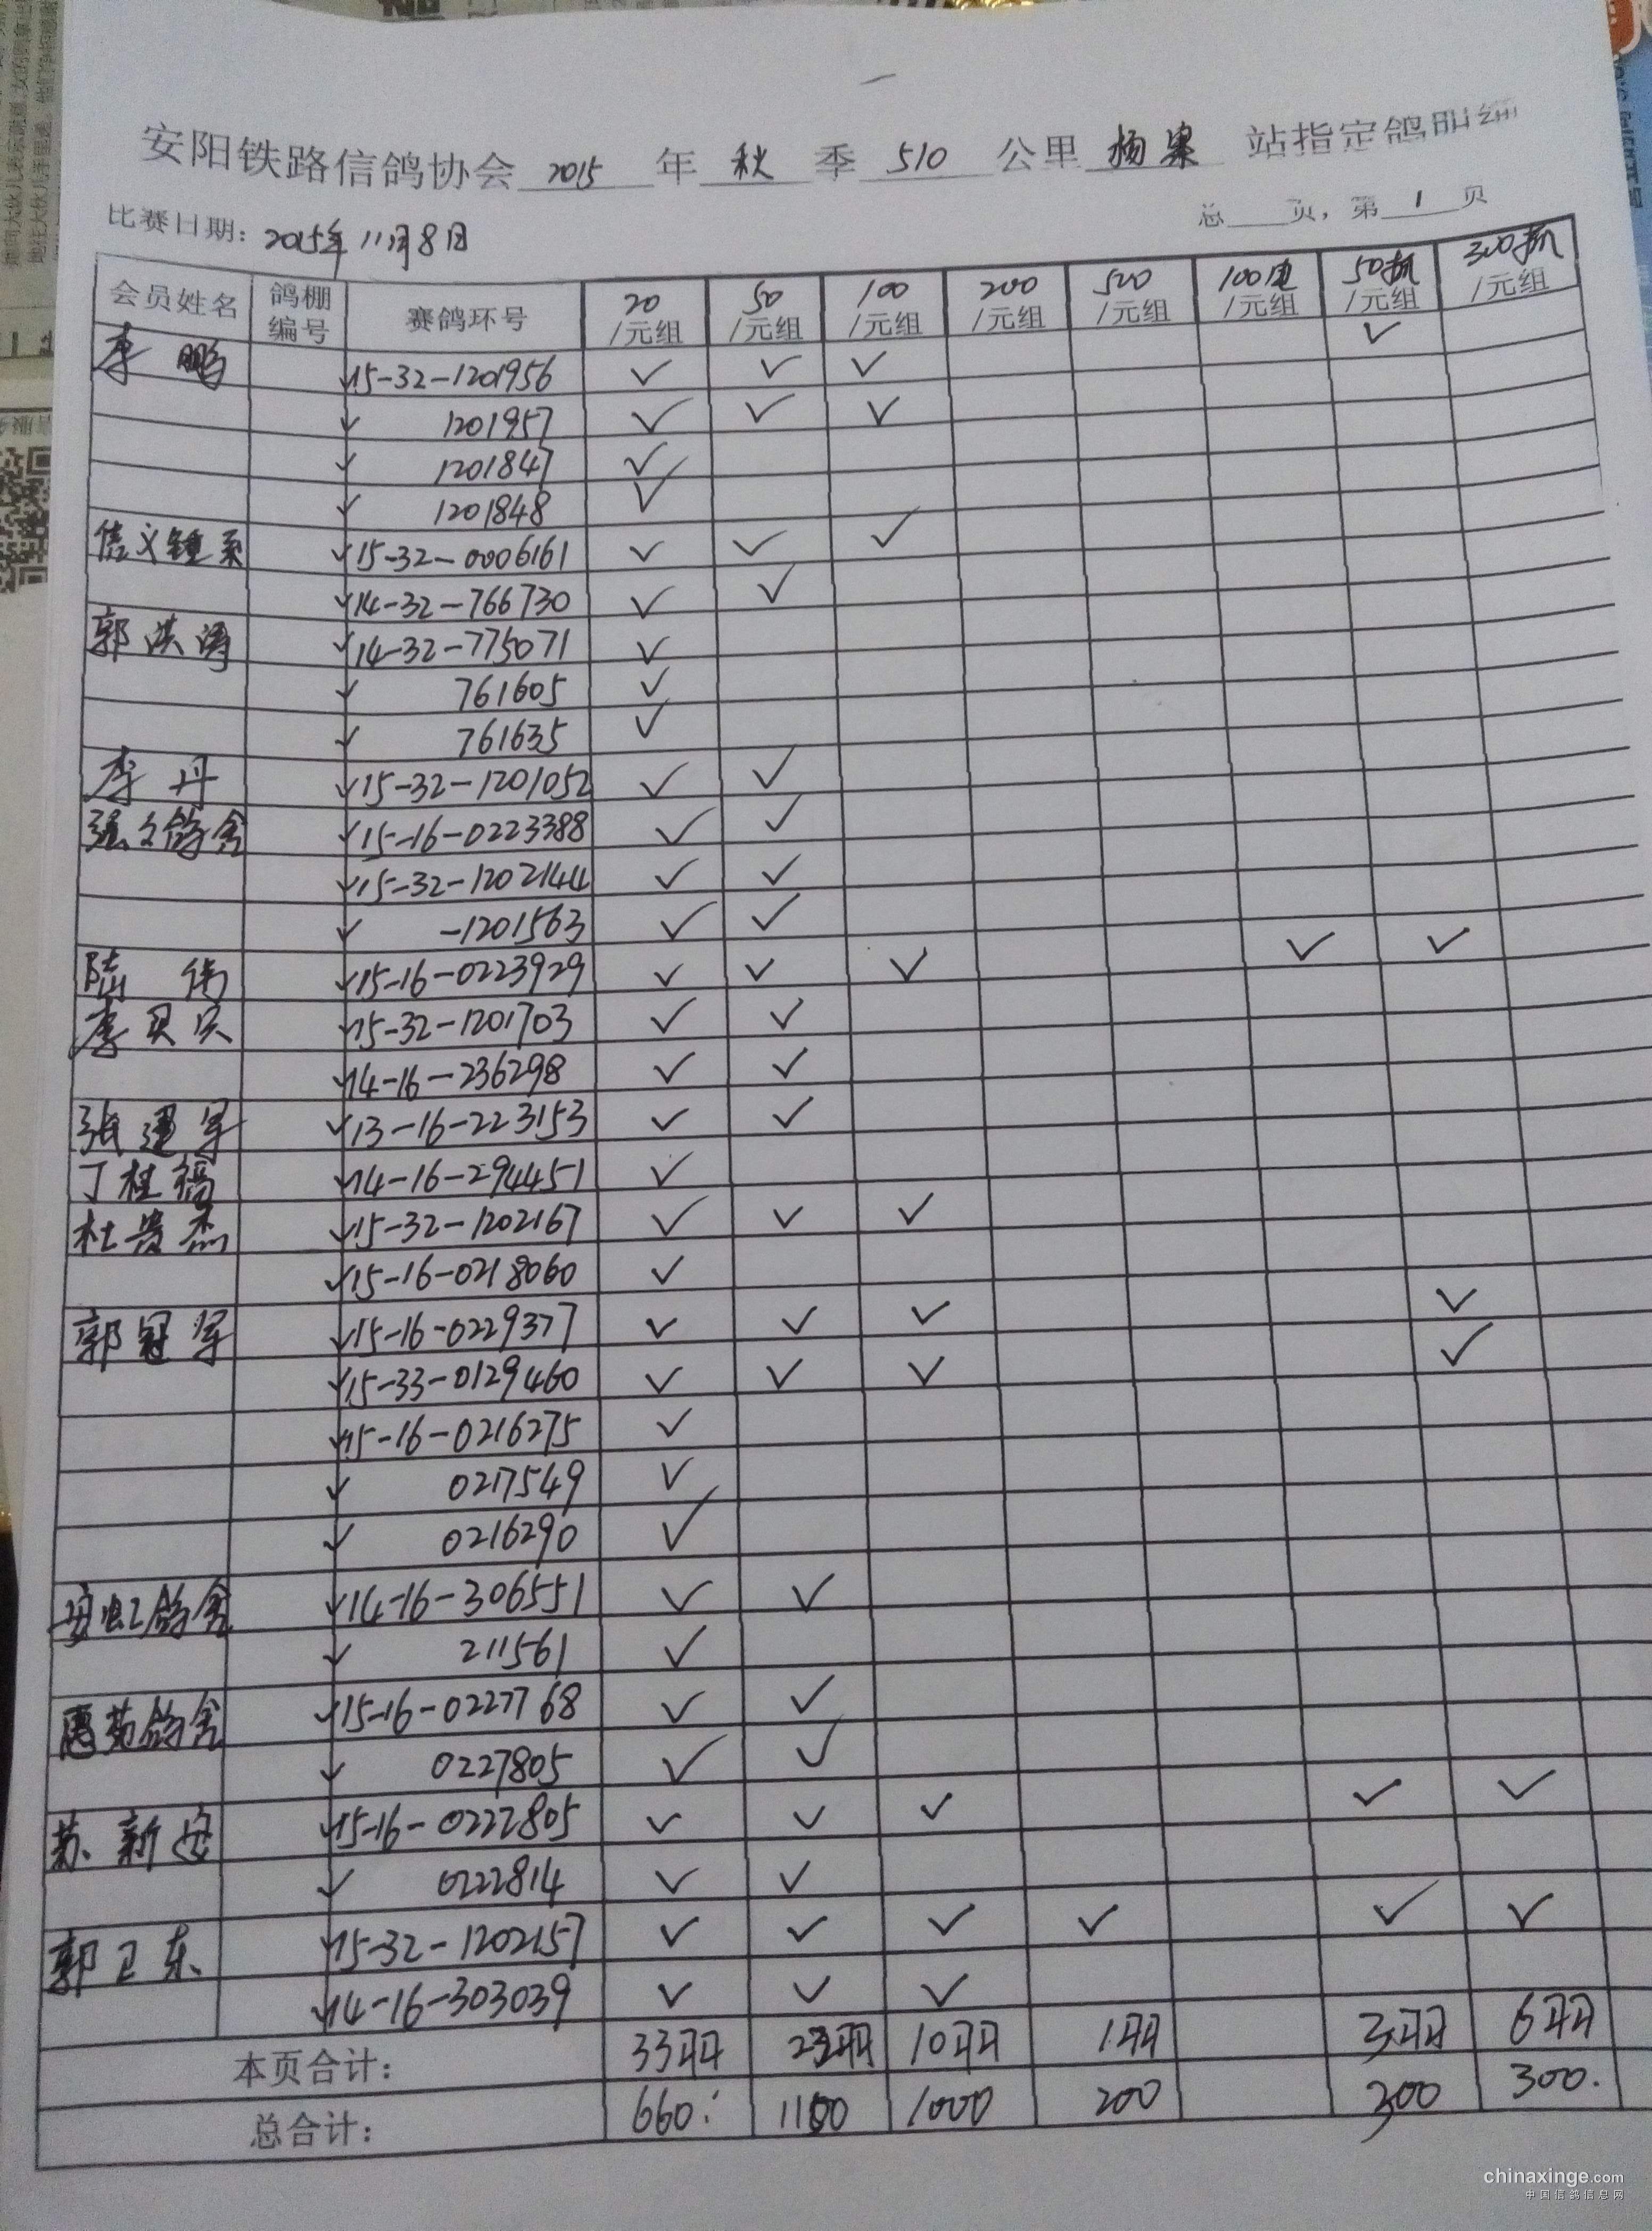 安阳铁路信鸽协会 2015 年 秋 季 510 公里 杨寨 站指定鸽明细
比赛日期: 2015年11月8日
总 页, 第 1 页
会员姓名 鸽棚编号 赛鸽环号 20/元组 50/元组 100/元组 200/元组 500/元组 100电/元组 50抓/元组 300抓/元组
李鹏 ✓15-32-1201956 ✓ ✓ ✓ ✓
✓ 1201957 ✓ ✓ ✓
✓ 1201847 ✓
✓ 1201848 ✓
信义锺系 ✓15-32-0006161 ✓ ✓ ✓
✓14-32-766730 ✓ ✓
郭洪涛 ✓14-32-775071 ✓
✓ 761605 ✓
✓ 761635 ✓
李丹 ✓15-32-1201052 ✓ ✓
强之鸽舍 ✓15-16-0223388 ✓ ✓
✓15-32-1202144 ✓ ✓
✓ -1201563 ✓ ✓
陆伟 ✓15-16-0223929 ✓ ✓ ✓ ✓ ✓
李贝宾 ✓15-32-1201703 ✓ ✓
✓14-16-236298 ✓ ✓
张建军 ✓13-16-223153 ✓ ✓
丁桂福 ✓14-16-294451 ✓
杜贵杰 ✓15-32-1202167 ✓ ✓ ✓
✓15-16-0218060 ✓
郭冠军 ✓15-16-0229377 ✓ ✓ ✓ ✓
✓15-33-0129460 ✓ ✓ ✓ ✓
✓15-16-0216275 ✓
✓ 0217549 ✓
✓ 0216290 ✓
安虹鸽舍 ✓14-16-306551 ✓ ✓
✓ 211561 ✓
惠苑鸽舍 ✓15-16-0227768 ✓ ✓
✓ 0227805 ✓ ✓
苏新安 ✓15-16-0222805 ✓ ✓ ✓ ✓ ✓
✓ 0222814 ✓ ✓
郭卫东 ✓15-32-1202157 ✓ ✓ ✓ ✓ ✓ ✓
✓14-16-303039 ✓ ✓ ✓
本页合计: 33羽 羽 10羽 1羽 3羽 6羽
总合计: 660. 1100 1000 200 300 300.
chinaxinge.com
中国信鸽信息网